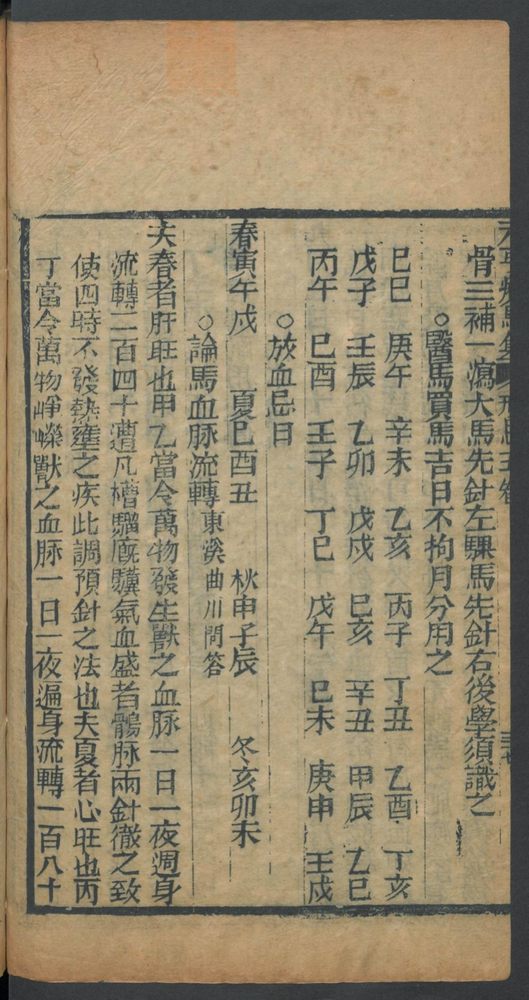 骨三補一瀉大馬先針左騍馬先針右後學須識之
○醫馬買馬吉日不拘月分用之
己巳 庚午 辛未 乙亥 丙子 丁丑 乙酉 丁亥
戊子 壬辰 乙卯 戊戌 巳亥 辛丑 甲辰 乙巳
丙午 巳酉 壬子 丁巳 戊午 巳未 庚申 壬戌
○放血忌日
春寅午戌 夏巳酉丑 秋申子辰 冬亥卯未
○論馬血脉流轉東溪曲川問答
夫春者肝旺也甲乙當令萬物發生獸之血脉一日一夜週身
流轉二百四十遭凡槽騮廐驥氣血盛者鶻脉兩針徹之致
使四時不發熱壅之疾此調預針之法也夫夏者心旺也丙
丁當令萬物崢嶸獸之血脉一日一夜遍身流轉一百八十